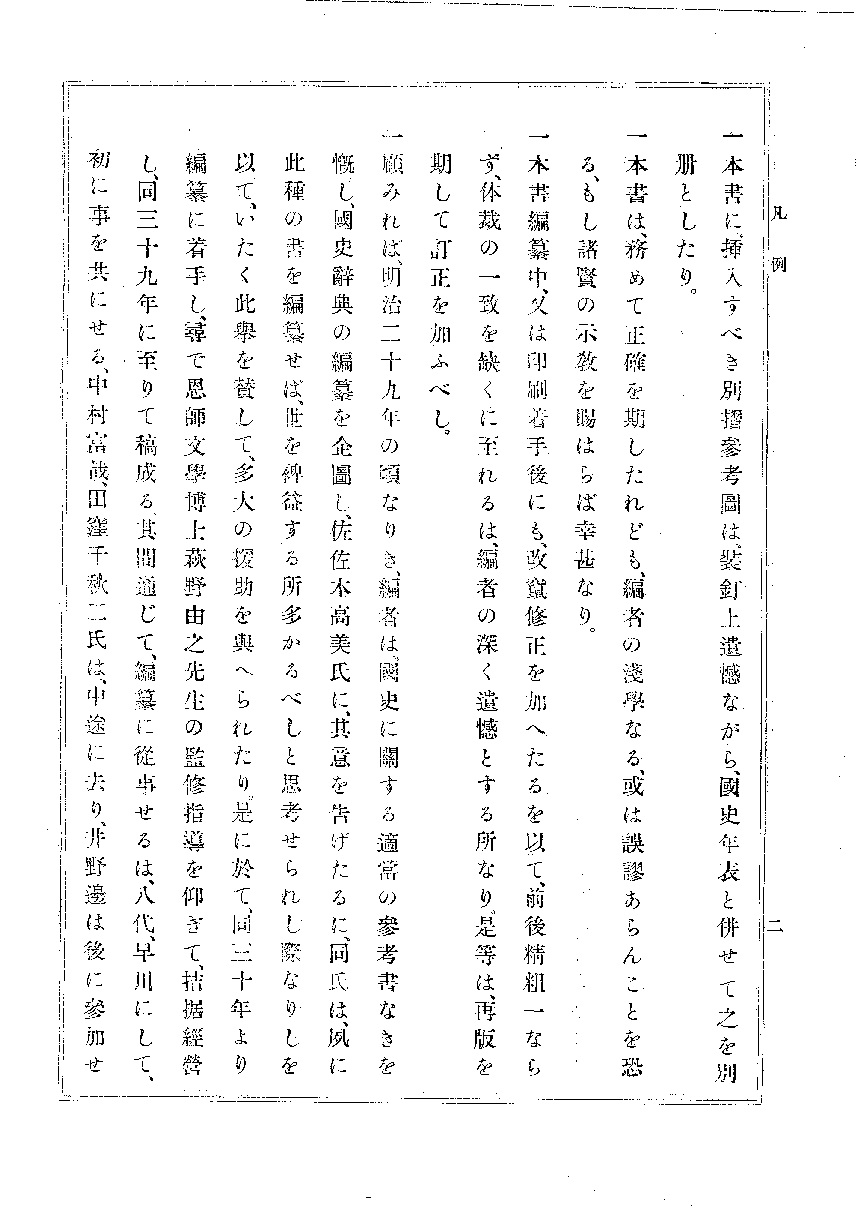 凡例
二
一本書に、挿入すべき別摺參考圖は、裝釘上遺憾ながら、國史年表と併せて之を別
册としたり。
一本書は、務めて正確を期したれども、編者の淺學なる、或は誤謬あらんことを恐
る、もし諸賢の示敎を賜はらば幸甚なり。
一本書編纂中、又は印刷着手後にも、改竄修正を加へたるを以て、前後精粗一なら
ず、体裁の一致を缺くに至れるは、編者の深く遺憾とする所なり。是等は、再版を
期して訂正を加ふべし。
一顧みれば、明治二十九年の頃なりき、編者は、國史に關する適當の參考書なきを
慨し、國史辭典の編纂を企圖し、佐佐木高美氏に、其意を告げたるに、同氏は、夙に
此種の書を編纂せば、世を裨益する所多かるべしと思考せられし際なりしを
以て、いたく此擧を賛して、多大の援助を與へられたり。是に於て、同三十年より
編纂に着手し、尋で恩師文學博士萩野由之先生の監修指導を仰ぎて、拮据經營
し、同三十九年に至りて稿成る、其間通じて、編纂に從事せるは、八代、早川にして、
初に事を共にせる、中村富哉、田窪千秋二氏は、中途に去り、井野邊は後に參加せ